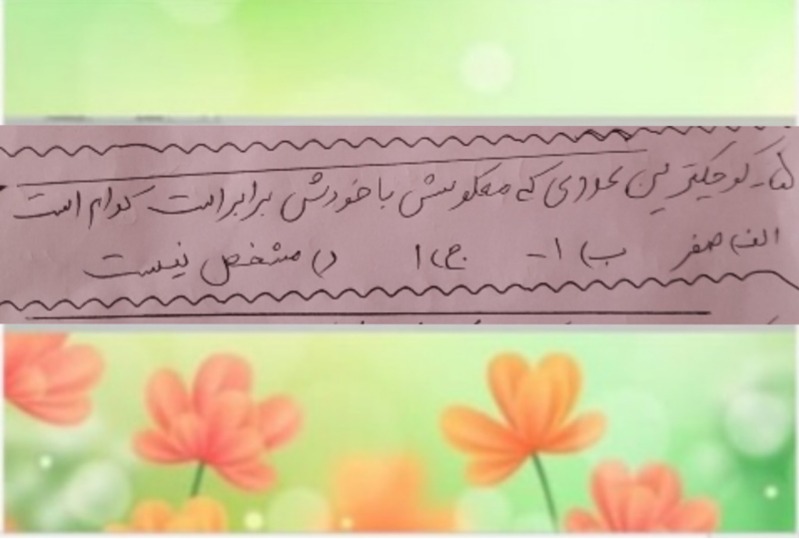 ۵- کوچکترین عددی که معکوسش با خودش برابر است کدام است
الف) صفر ب) ۱- ج) ۱ د) مشخص نیست